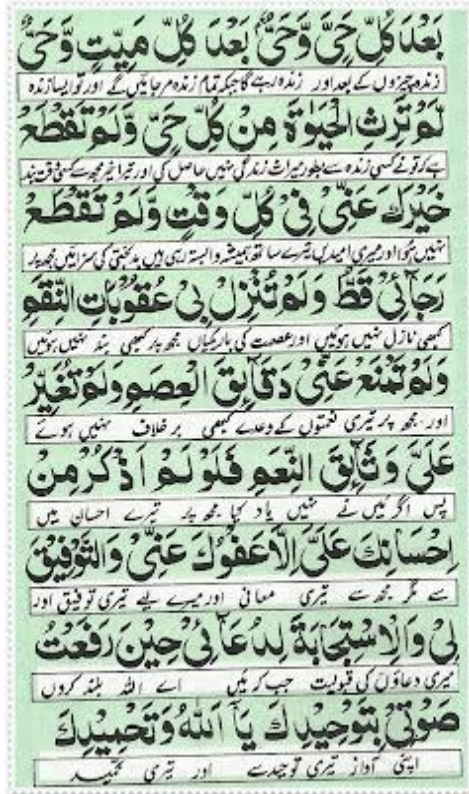 بَعْدَ كُلِّ حَيٍّ وَّحَيٌّ بَعْدَ كُلِّ مَيِّتٍ وَّحَيٌّ
زندہ چیزوں کے بعد اور زندہ رہے گا جبکہ تمام زندہ مر جائیں گے اور تو ایسا زندہ
لَّمْ تَرِثِ الْحَيٰوةَ مِنْ كُلِّ حَيٍّ وَّلَمْ تَقْطَعْ
ہے کہ تو نے کسی زندہ سے بطور میراث زندگی نہیں حاصل کی اور تیرا خیر مجھ سے کسی وقت بند
خَيْرَكَ عَنِّيْ فِيْ كُلِّ وَقْتٍ وَّلَمْ تَقْطَعْ
نہیں ہوا اور میری امیدیں تیرے ساتھ ہمیشہ وابستہ رہی ہیں بدبختی کی سزائیں مجھ پر
رَجَآئِيْ قَطُّ وَلَمْ تُنْزِلْ بِيْ عُقُوْبَاتِ النِّقَمِ
کبھی نازل نہیں ہوئیں اور عصمت کی باریکیاں مجھ پر کبھی بند نہیں ہوئیں
وَلَمْ تَمْنَعْ عَنِّيْ دَقَآئِقَ الْعِصَمِ وَلَمْ تُغَيِّرْ
اور مجھ پر تیری نعمتوں کے وعدے کبھی برخلاف نہیں ہوئے
عَلَيَّ وَثَآئِقَ النِّعَمِ فَلَوْ لَمْ اَذْكُرْ مِنْ
پس اگر میں نے نہیں یاد کیا مجھ پر تیرے احسان ہیں
اِحْسَانِكَ عَلَيَّ اِلَّا عَفْوَكَ عَنِّيْ وَالتَّوْفِيْقَ
سے مگر مجھ سے تیری معافی اور میرے لیے تیری توفیق اور
لِيْ وَالْاِسْتِجَابَةَ لِدُعَآئِيْ حِيْنَ رَفَعْتُ
میری دعاؤں کی قبولیت جب کر میں اے اللہ بلند کروں
صَوْتِيْ بِتَوْحِيْدِكَ يَآ اَللّٰهُ وَتَحْمِيْدِكَ
اپنی آواز تیری توحید سے اور تیری تحمید